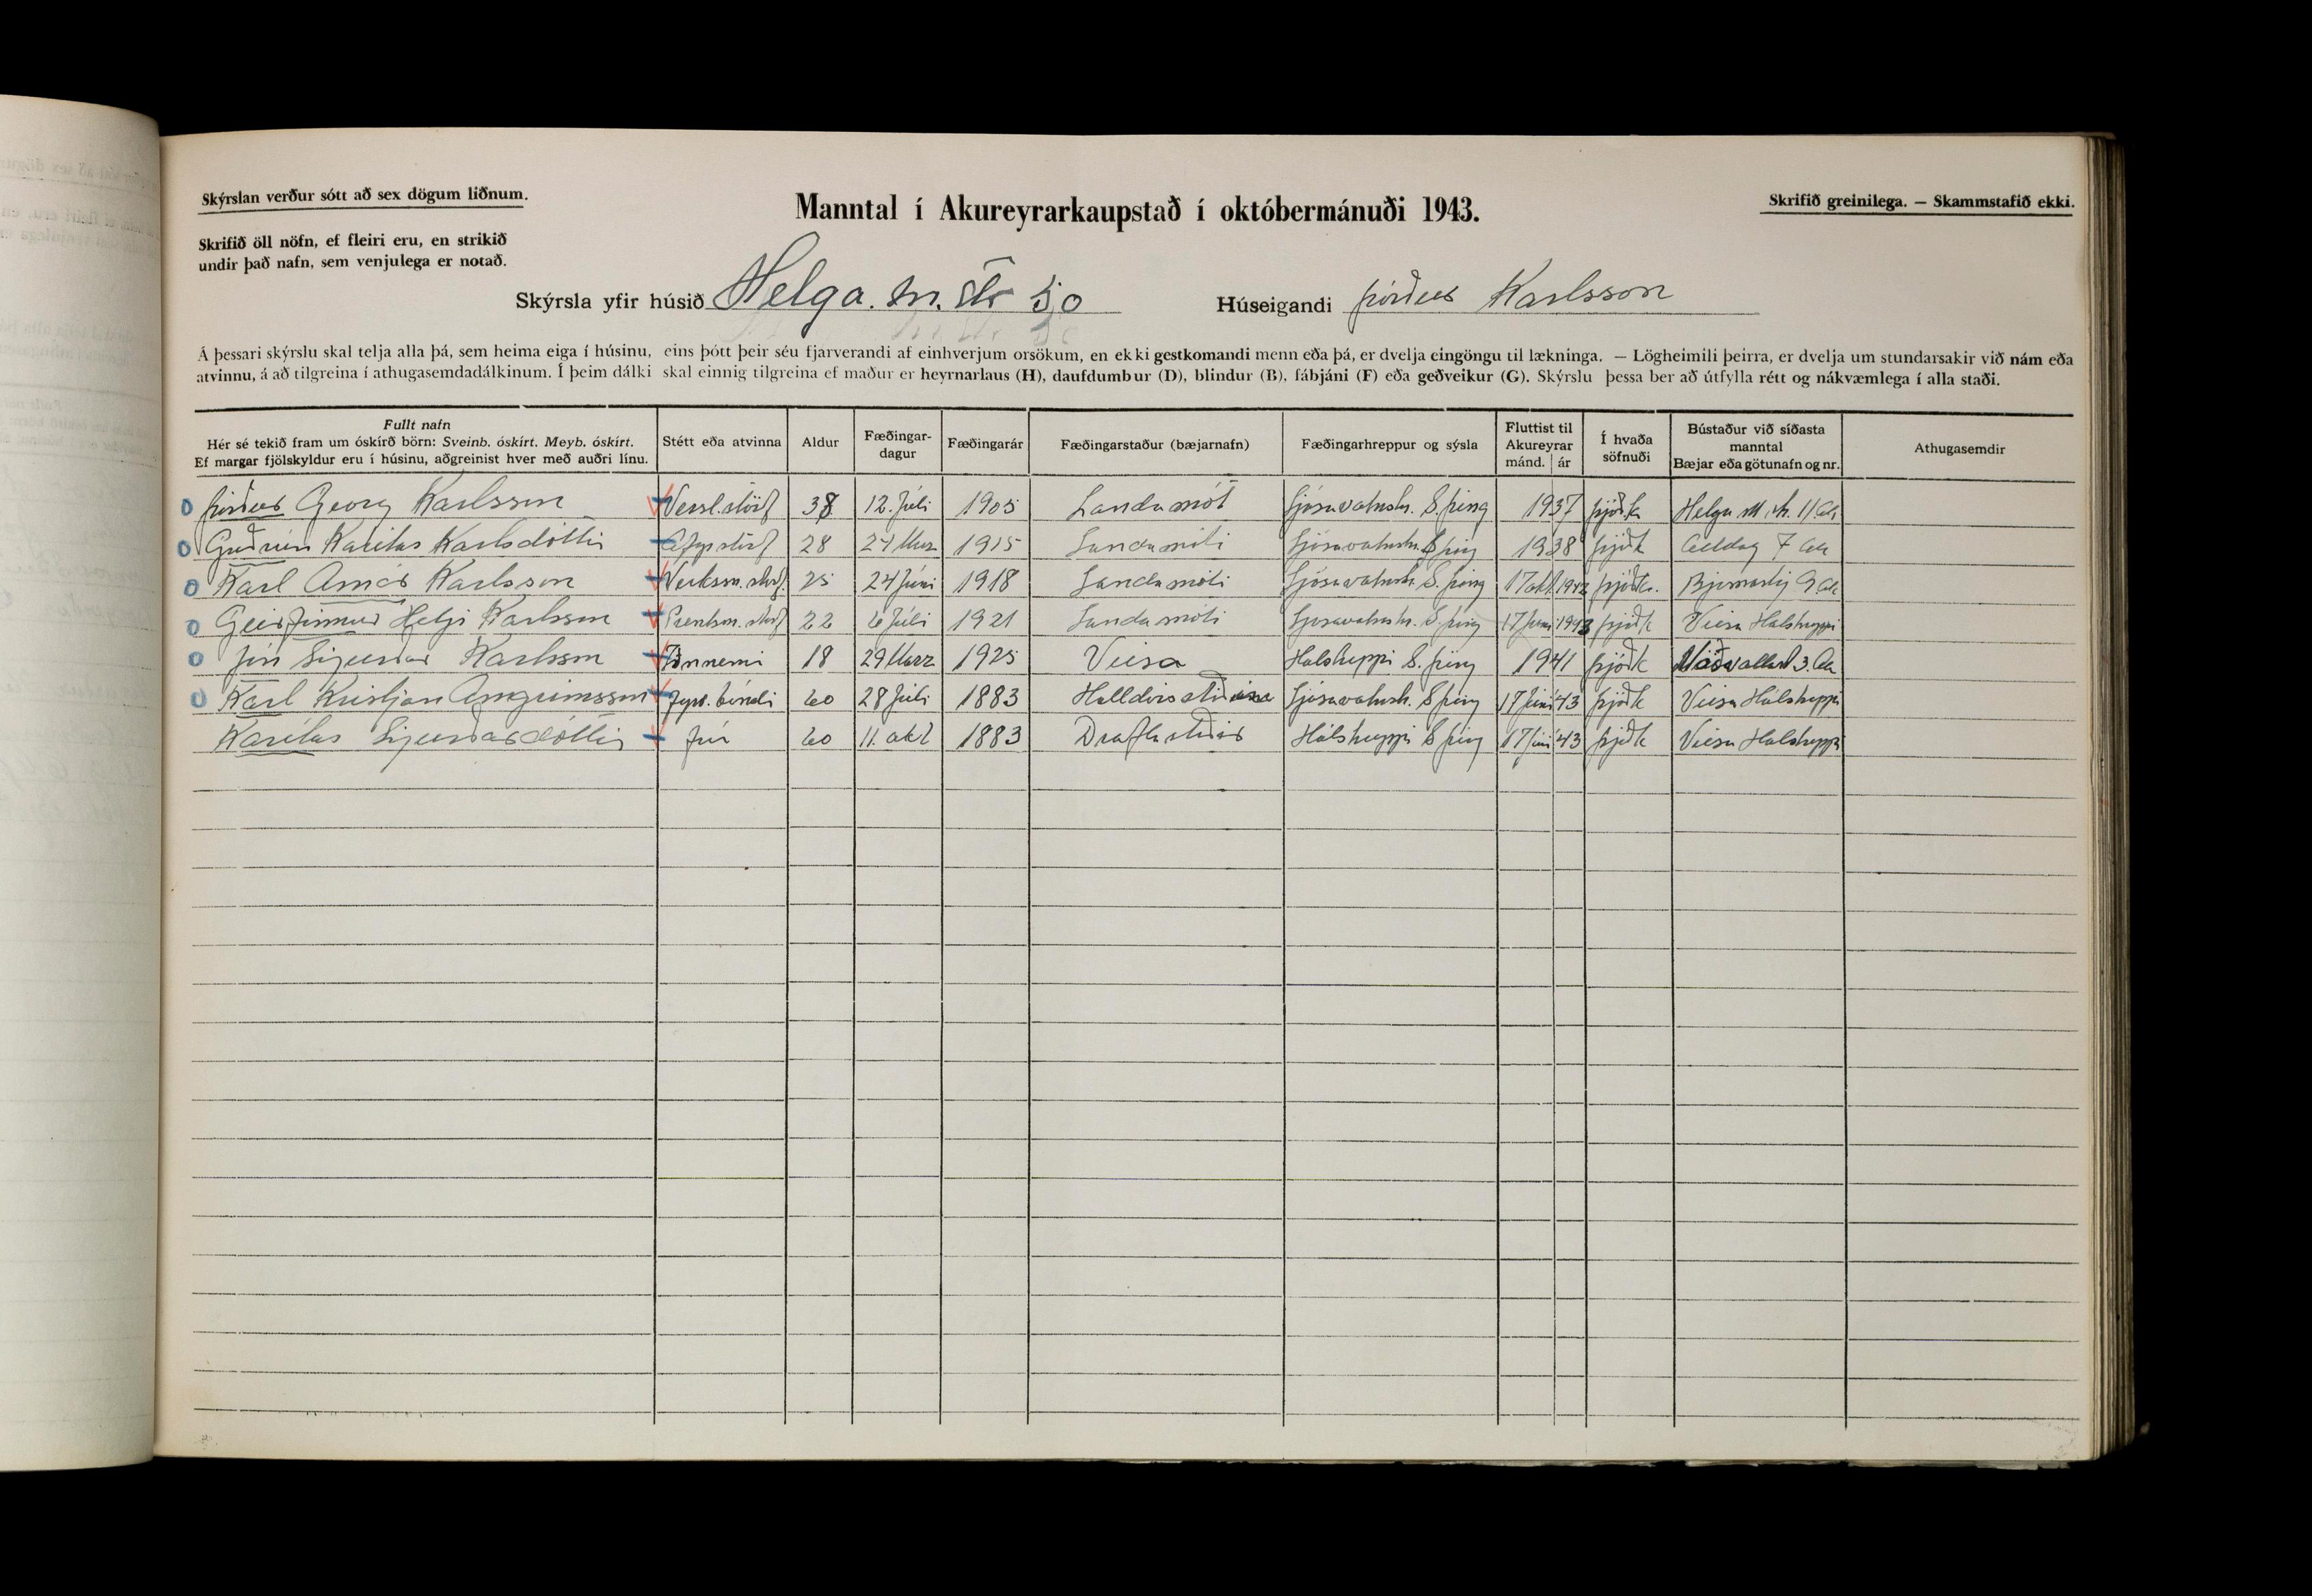 Skýrslan verður sótt að sex dögum liðnum.
Manntal í Akureyrarkaupstað í októbermánuði 1943.
Skrifið greinilega. — Skammstafið ekki.
Skrifið öll nöfn, ef fleiri eru, en strikið
undir það nafn, sem venjulega er notað.
Skýrsla yfir húsið Helga. m. str 50 Húseigandi Þórður Karlsson
Á þessari skýrslu skal telja alla þá, sem heima eiga í húsinu, eins þótt þeir séu fjarverandi af einhverjum orsökum, en ekki gestkomandi menn eða þá, er dvelja eingöngu til lækninga. — Lögheimili þeirra, er dvelja um stundarsakir við nám eða
atvinnu, á að tilgreina í athugasemdadálkinum. Í þeim dálki skal einnig tilgreina ef maður er heyrnarlaus (H), daufdumbur (D), blindur (B), fábjáni (F) eða geðveikur (G). Skýrslu þessa ber að útfylla rétt og nákvæmlega í alla staði.
Fullt nafn
Hér sé tekið fram um óskírð börn: Sveinb. óskírt. Meyb. óskírt.
Ef margar fjölskyldur eru í húsinu, aðgreinist hver með auðri línu.
Stétt eða atvinna
Aldur
Fæðingar-
dagur
Fæðingarár
Fæðingarstaður (bæjarnafn)
Fæðingarhreppur og sýsla
Fluttist til
Akureyrar
mánd. ár
Í hvaða
söfnuði
Bústaður við síðasta
manntal
Bæjar eða götunafn og nr.
Athugasemdir
Þórður Georg Karlsson Versl.störf 38 12. Júli 1905 Landamót Ljósavatnshr. S.þing 1937 þjóðk Helga M. st. 11 Ak
Guðrún Karitas Karlsdóttir Afgr störf 28 24 Marz 1915 Landamóti Ljósavatnshr. S þing 1938 þjóðk 7 Ak
Karl Arnór Karlsson Verksm. störf 25 24 Júni 1918 Landamóti Ljósavatnshr. S. þing 17 okt. 1942 þjóðk. 9 Ak
Geirfinnur Helgi Karlsson störf 22 6 Júli 1921 Landamóti Ljósavatnshr. S þing 17 Juni 1943 þjóðk Veisu Halshreppi
Jón Sigurður Karlsson Iðnnemi 18 29 Marz 1925 Veisa Halshreppi S. þing 1941 þjóðk Möðruvallast 3. Ak
Karl Kristjan Arngrimsson Fyrv. bóndi 60 28 Júli 1883 Halldórsstöðum Ljósavatnsh. S þing 17 Juni 43 þjóðk Veisu Hálshreppi
Karitas Sigurðardóttir frú 60 11. okt 1883 Draflastöðir Hálshreppi S þing 17 Juni 43 þjóðk Veisu Halshreppi